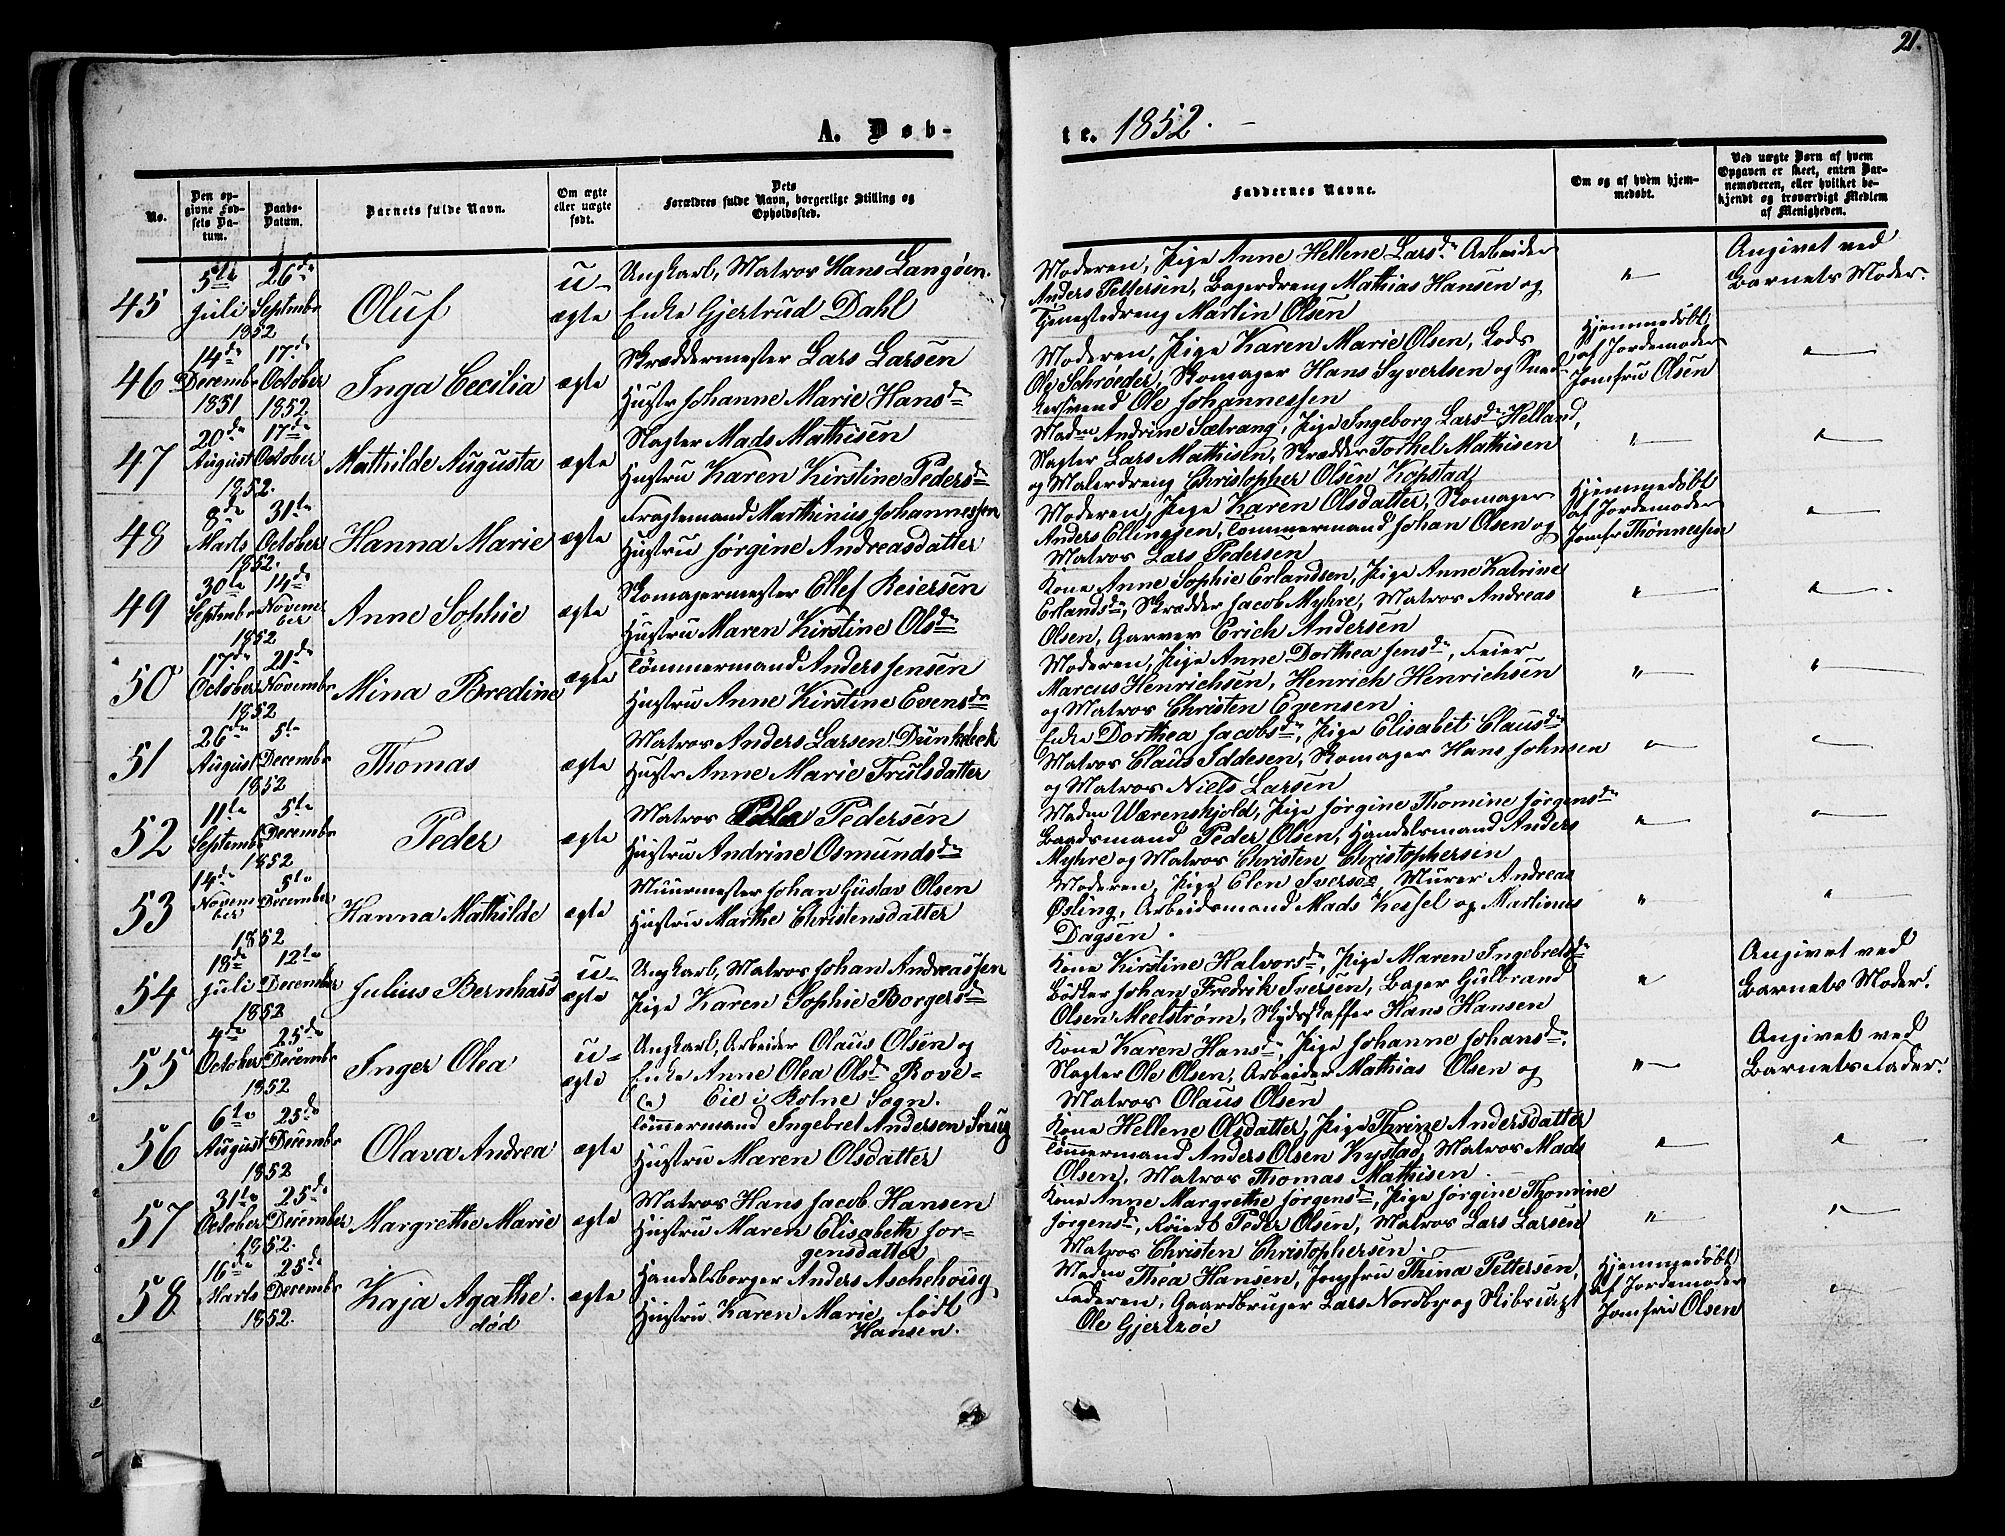 21.
A. Døb-
te. 1852.
No.
Den op-
givne Fød-
sels Da-
tum.
Daabs-
Datum.
Barnets fulde Navn.
Om ægte
eller uægte
født.
Dets
Forældres fulde Navn, borgerlige Stilling og
Opholdssted.
Faddernes Navne.
Om og af hvem hjem-
medøbt.
Ved uægte Børn af hvem
Opgaven er skeet, enten Bar-
nemoderen, eller hvilket be-
kjendt og troværdigt Medlem
af Menigheden.
45
5te
Juli
26de
Septembr
1852
Oluf
u-
ægte
Ungkarl, Matros Hans Langøen.
Enke Gjertrud Dahl
Moderen, Pige Anne Hellene Larsdr Arbeider
Anders Pettersen, Bagerdreng Mathias Hansen og
Tjenestedreng Martin Olsen
"
Angivet ved
Barnets Moder.
46
14de
Decembr
1851
17de
October
1852.
Inga Cecilia
ægte
Skræddermester Lars Larsen
Hustr Johanne Marie Hansdr
Moderen, Pige Karen Marie Olsen, Gods
Ole Schrøeder, Skomager Hans Syvertsen og Sned-
kersvend Ole Johannessen
Hjemmedøbt
af Jordemoder
Jomfru Olsen
"
47
20de
August
17de
October
1852.
Mathilde Augusta
ægte
Slagter Mads Mathisen
Hustru Karen Kirstine Pedersdr
Madm Andrine Sætrang, Pige Ingeborg Larsdr Helland,
Slagter Lars Mathisen, Skrædder Torkel Mathisen
og Malerdreng Christopher Olsen Kopstad
"
"
48
8de
Marts
31te
October
1852.
Hanna Marie
ægte
Fragtemand Marthinius Johannessen
Hustru Jørgine Andreasdatter
Moderen, Pige Karen Olsdatter, Skomager
Anders Ellingsen, Tømmermand Johan Olsen og
Matros Lars Pedersen
Hjemmedøbt
af Jordemoder
Jomfr Thønnessen
"
49
30te
Septembr
14de
Novem-
ber
1852
Anne Sophie
ægte
Skomagermester Ellef Reiersen
Hustru Maren Kirstine Olsdr
Kone Anne Sophie Erlandsen, Pige Anne Katrine
Erlandsdr, Skrædder Jacob Myhre, Matros Andreas
Olsen, Garver Erich Andersen
"
"
50
17de
October
21de
Novembr
1852
Mina Bredine
ægte
Tømmermand Anders Jensen
Hustru Anne Kirstine Evensdr
Moderen, Pige Anne Dorthea Jensdr, Feier
Marcus Henrichsen, Henrich Henrichsen
og Matros Christen Evensen.
"
"
51
26de
August
5te
Decembr
1852
Thomas
ægte
Matros Anders Larsen Dunkebek
Hustr Anne Marie Trulsdatter
Enke Dorthea Jacobsdr, Pige Elisabet Clausdr
Matros Claus Iddesen, Skomager Hans Johnsen
og Matros Niels Larsen
"
"
52
11te
Septembr
5te
Decembr
1852
Peder
ægte
Matros Pedersen
Hustru Andrine Osmundsdr
Madm Wærenskjold, Pige Jørgine Thomine Jørgensdr
Baadsmand Peder Olsen, Handelsmand Anders
Myhre og Matros Christen Christophersen
"
"
53
14de
Novem-
ber
5te
December
1852
Hanna Mathilde
ægte
Muurmester Johan Gustav Olsen
Hustru Marthe Christensdatter
Moderen, Pige Elen Iversdr, Murer Andreas
Øsling, Arbeidsmand Mads Kessel og Martinus
Dagsen.
"
"
54
18de
Juli
12te
December
1852
Julius Bernhard
u-
ægte
Ungkarl, Matros Johan Andreassen
Pige Karen Sophie Borgersdr
Kone Kirstine Halvorsdr, Pige Maren Ingebretsdr
Bödker Johan Fredrik Iversen, Bager Gulbrand
Olsen Meelstrøm, Skydsskaffer Hans Hansen
"
Angivet ved
Barnets Moder.
55
4de
October
25de
Decembr
1852
Inger Olea
u-
ægte
Ungkarl, Arbeider Olaus Olsen og
Enke Anne Olea Olsdr Rove-
Eie i Botne Sogn.
Kone Karen Hansdr, Pige Johanne Johansdr.
Slagter Ole Olsen, Arbeider Mathias Olsen og
Matros Olaus Olsen
"
Angivet ved
Barnets Fader.
56
6te
August
25de
Decembr
1852
Olava Andrea
ægte
Tømmermand Ingebret Andersen Snug
Hustru Maren Olsdatter
Kone Hellene Olsdatter, Pige Thrine Andersdatter
Tømmermand Anders Olsen Kystad, Matros Mads
Olsen, Matros Thomas Mathisen.
"
"
57
31te
October
25de
December
1852.
Margrethe Marie
ægte
Matros Hans Jacob Hansen
Hustru Maren Elisabeth Jør-
gensdatter
Kone Anne Margrethe Jørgensdr, Pige Jørgine Thomine
Jørgensdr, Røiert Peder Olsen, Matros Lars Larsen
Matros Christen Christophersen.
"
"
58
16de
Marts
25de
Decembr
1852.
Kaja Agathe.
død
ægte
Handelsborger Anders Aschehoug,
Hustru Karen Marie, født
Hansen.
Madm Thea Hansen, Jomfru Thina Pettersen,
Faderen, Gaardbruger Lars Nordby og Skibsrigt
Ole Gjertrøe
Hjemmedøbt
af Jordemoder
Jomfru Olsen
"